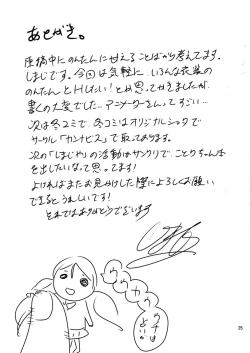 あとがき。
原稿中にのんたんに甘えることばかり考えてます。
しまじです。今回は気軽に いろんな衣装の
のんたんとHしたい！とか思ってかきましたが、
書くの大変でした…アニメーターさんってすごい…
次は冬コミで、冬コミはオリジナルショタで
サークル「カンナビス」で取ってあります。
次の「しまじや」の活動はサンクリで、ことりちゃん本
を出したいなって思ってます！
よければまたお見かけした際によろしくお願い
できるとうれしいです！
それではありがとうございます
ウチは
25